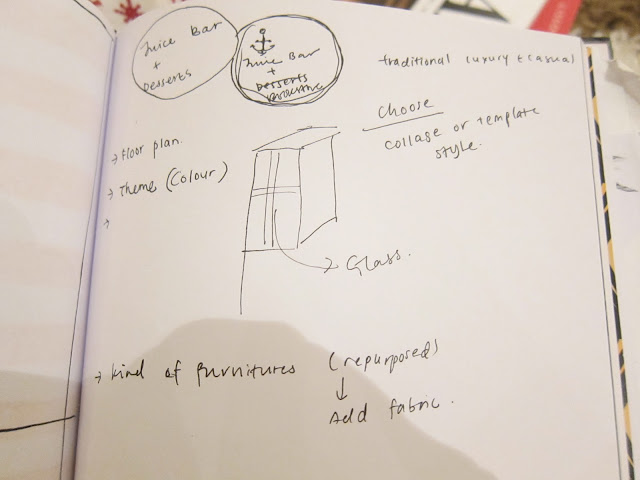 Juice Bar
+
Desserts
Juice Bar
+
Desserts
traditional luxury + casual
Choose
collage or template
style.
→ Floor plan.
→ Theme (Colour)
→
→ Glass.
→ Kind of furnitures (repurposed)
↓
Add fabric.